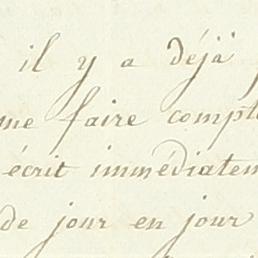 il y a déjä
me faire compt
écrit immédiatem
de jour en jour